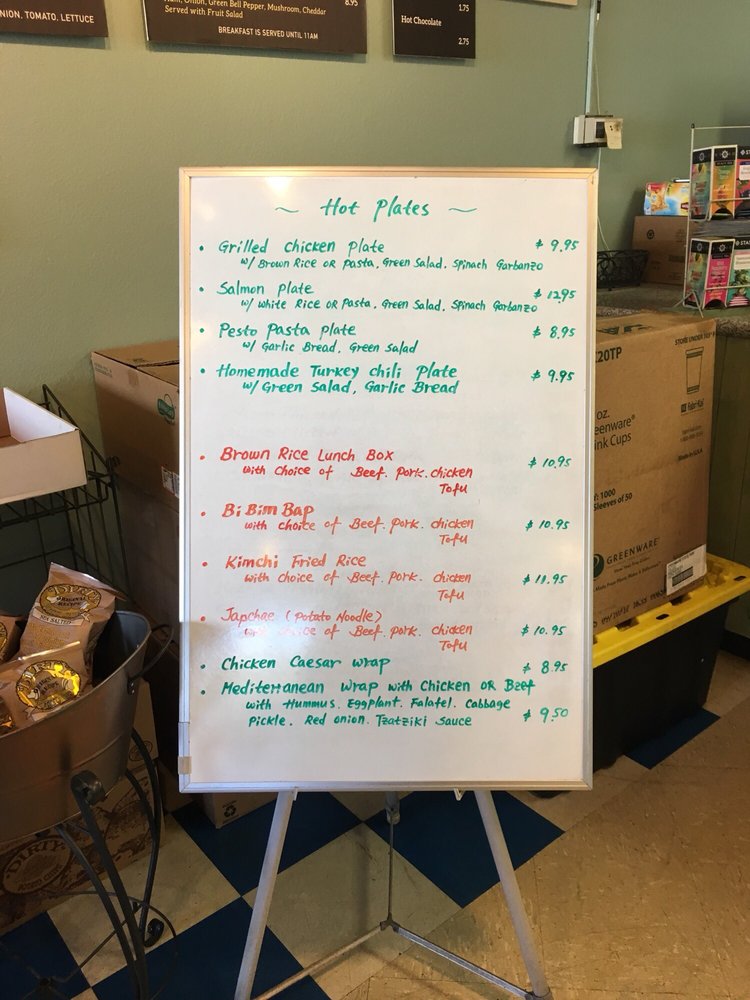 NION, TOMATO, LETTUCE
Ham, Onion, Green Bell Pepper, Mushroom, Cheddar 8.95
Served with Fruit Salad
BREAKFAST IS SERVED UNTIL 11AM
1.75
Hot Chocolate
2.75
~ Hot Plates ~
• Grilled Chicken Plate $ 9.95
w/ Brown Rice OR Pasta, Green Salad, Spinach Garbanzo
• Salmon Plate $ 12.95
w/ White Rice OR Pasta, Green Salad, Spinach Garbanzo
• Pesto Pasta Plate $ 8.95
w/ Garlic Bread, Green Salad
• Homemade Turkey Chili Plate $ 9.95
w/ Green Salad, Garlic Bread
• Brown Rice Lunch Box $ 10.95
with choice of Beef. Pork. Chicken
Tofu
• Bi Bim Bap $ 10.95
with choice of Beef. Pork. Chicken
Tofu
• Kimchi Fried Rice $ 11.95
with choice of Beef. Pork. Chicken
Tofu
• Japchae (Potato Noodle) $ 10.95
with choice of Beef. Pork. Chicken
Tofu
• Chicken Caesar Wrap $ 8.95
• Mediterranean Wrap with Chicken OR Beef
with Hummus. Eggplant. Falafel. Cabbage
Pickle. Red onion. Tzatziki Sauce $ 9.50
20TP
STORE UNDER
oz.
eenware®
ink Cups
Made in U.S.A.
Y: 1000
Sleeves of 50
GREENWARE®
DIRTY
ORIGINAL
RECIPE
SEA SALTED
DIRTY